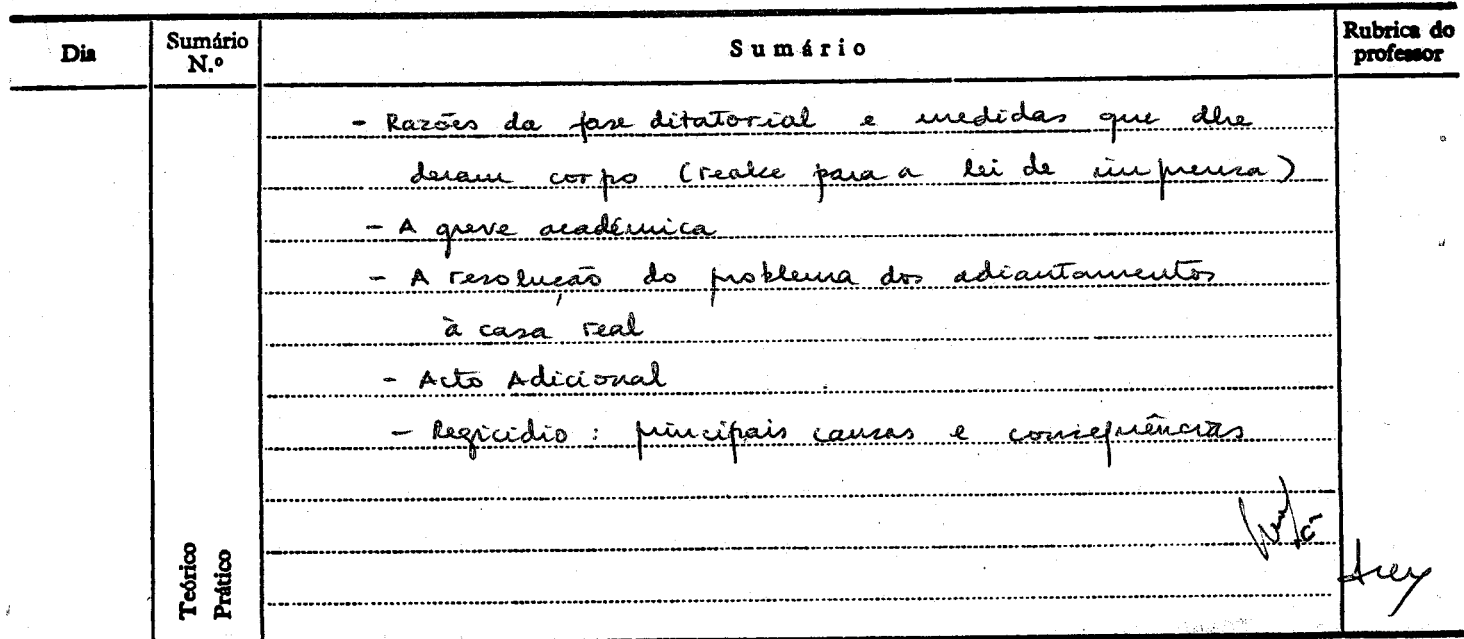 Dia Sumário N.º Sumário Rubrica do professor
- Razões da fase ditatorial e medidas que lhe
deram corpo (realce para a lei de imprensa)
- A greve académica
- A resolução do problema dos adiantamentos
à casa real
- Acto Adicional
- Regicídio : principais causas e consequências
Teórico
Prático